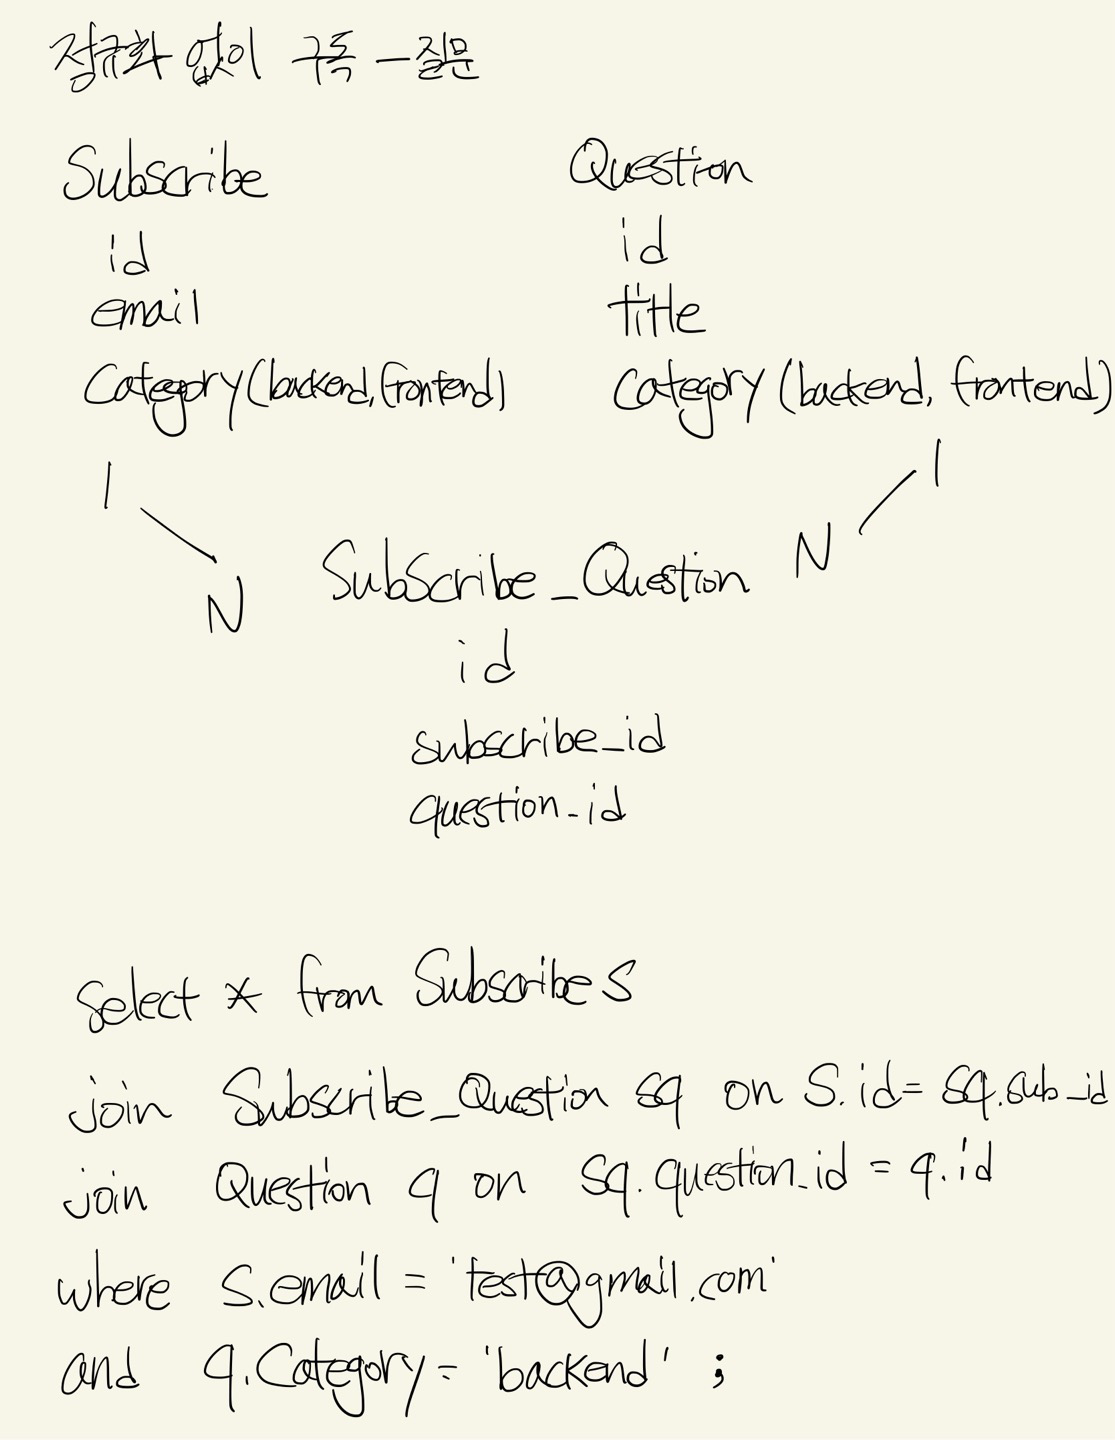 정규화 없이 구독 - 질문
Subscribe
id
email
Category (backend, frontend)
Question
id
title
Category (backend, frontend)
1
N
1
N
Subscribe_Question
id
subscribe_id
question_id
Select * from Subscribe S
join Subscribe_Question sq on S.id = sq.sub_id
join Question q on sq.question_id = q.id
where S.email = 'test@gmail.com'
and q.Category = 'backend' ;